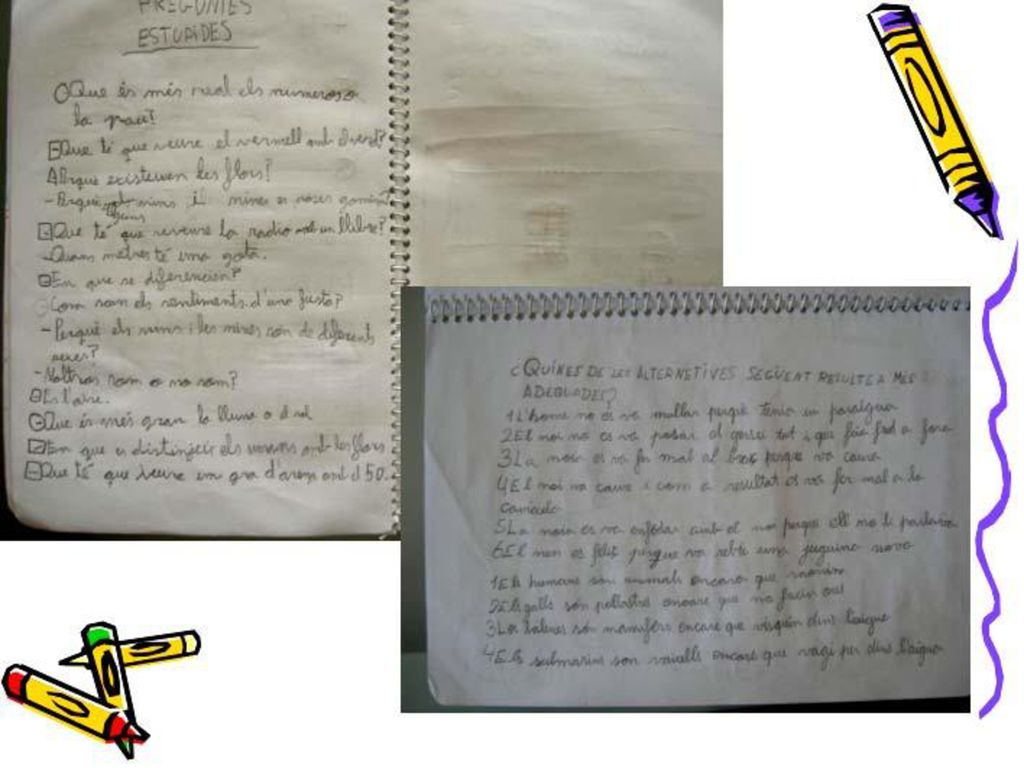 PREGUNTES
ESTUPIDES
Que és més real els numeros o
la
Que té que veure el vermell amb
Perquè existeixen les flors?
- Perquè nins i nines
Que té que veure la radio amb un llibre?
- Quans metres té una gota.
En que se diferencien?
Com son els sentiments d'una
- Perquè els nins i les nines són de diferents
sexes?
- Naltros som o no som?
Es l'aire.
Que és més gran la lluna o el sol
En que es distingeix els umans amb les flors
Que té que veure un gra d'arena amb el 50.
¿QUINES DE LES ALTERNETIVES SEGÜENT RESULTE A MES
ADEQUADES?
1 L'home no es va mullar perquè tenia un paraigua
2 El noi no es va posar el gersei tot i que feia fred a fora
3 La noia es va fer mal al braç perque va caure
4 El noi va caure i com a resultat es va fer mal a la
5 La noia es va enfadar amb el noi perque ell no li parlava
6 El nen es feliç perque va rebre una juguina nova
1 Els humans son animals encara que
2 Els galls són pollastres encare que no facin ous
3 Les balenes són mamifers encare que visquin dins l'aigua
4 Els submarins son vaixells encare que vagi per dins l'aigua